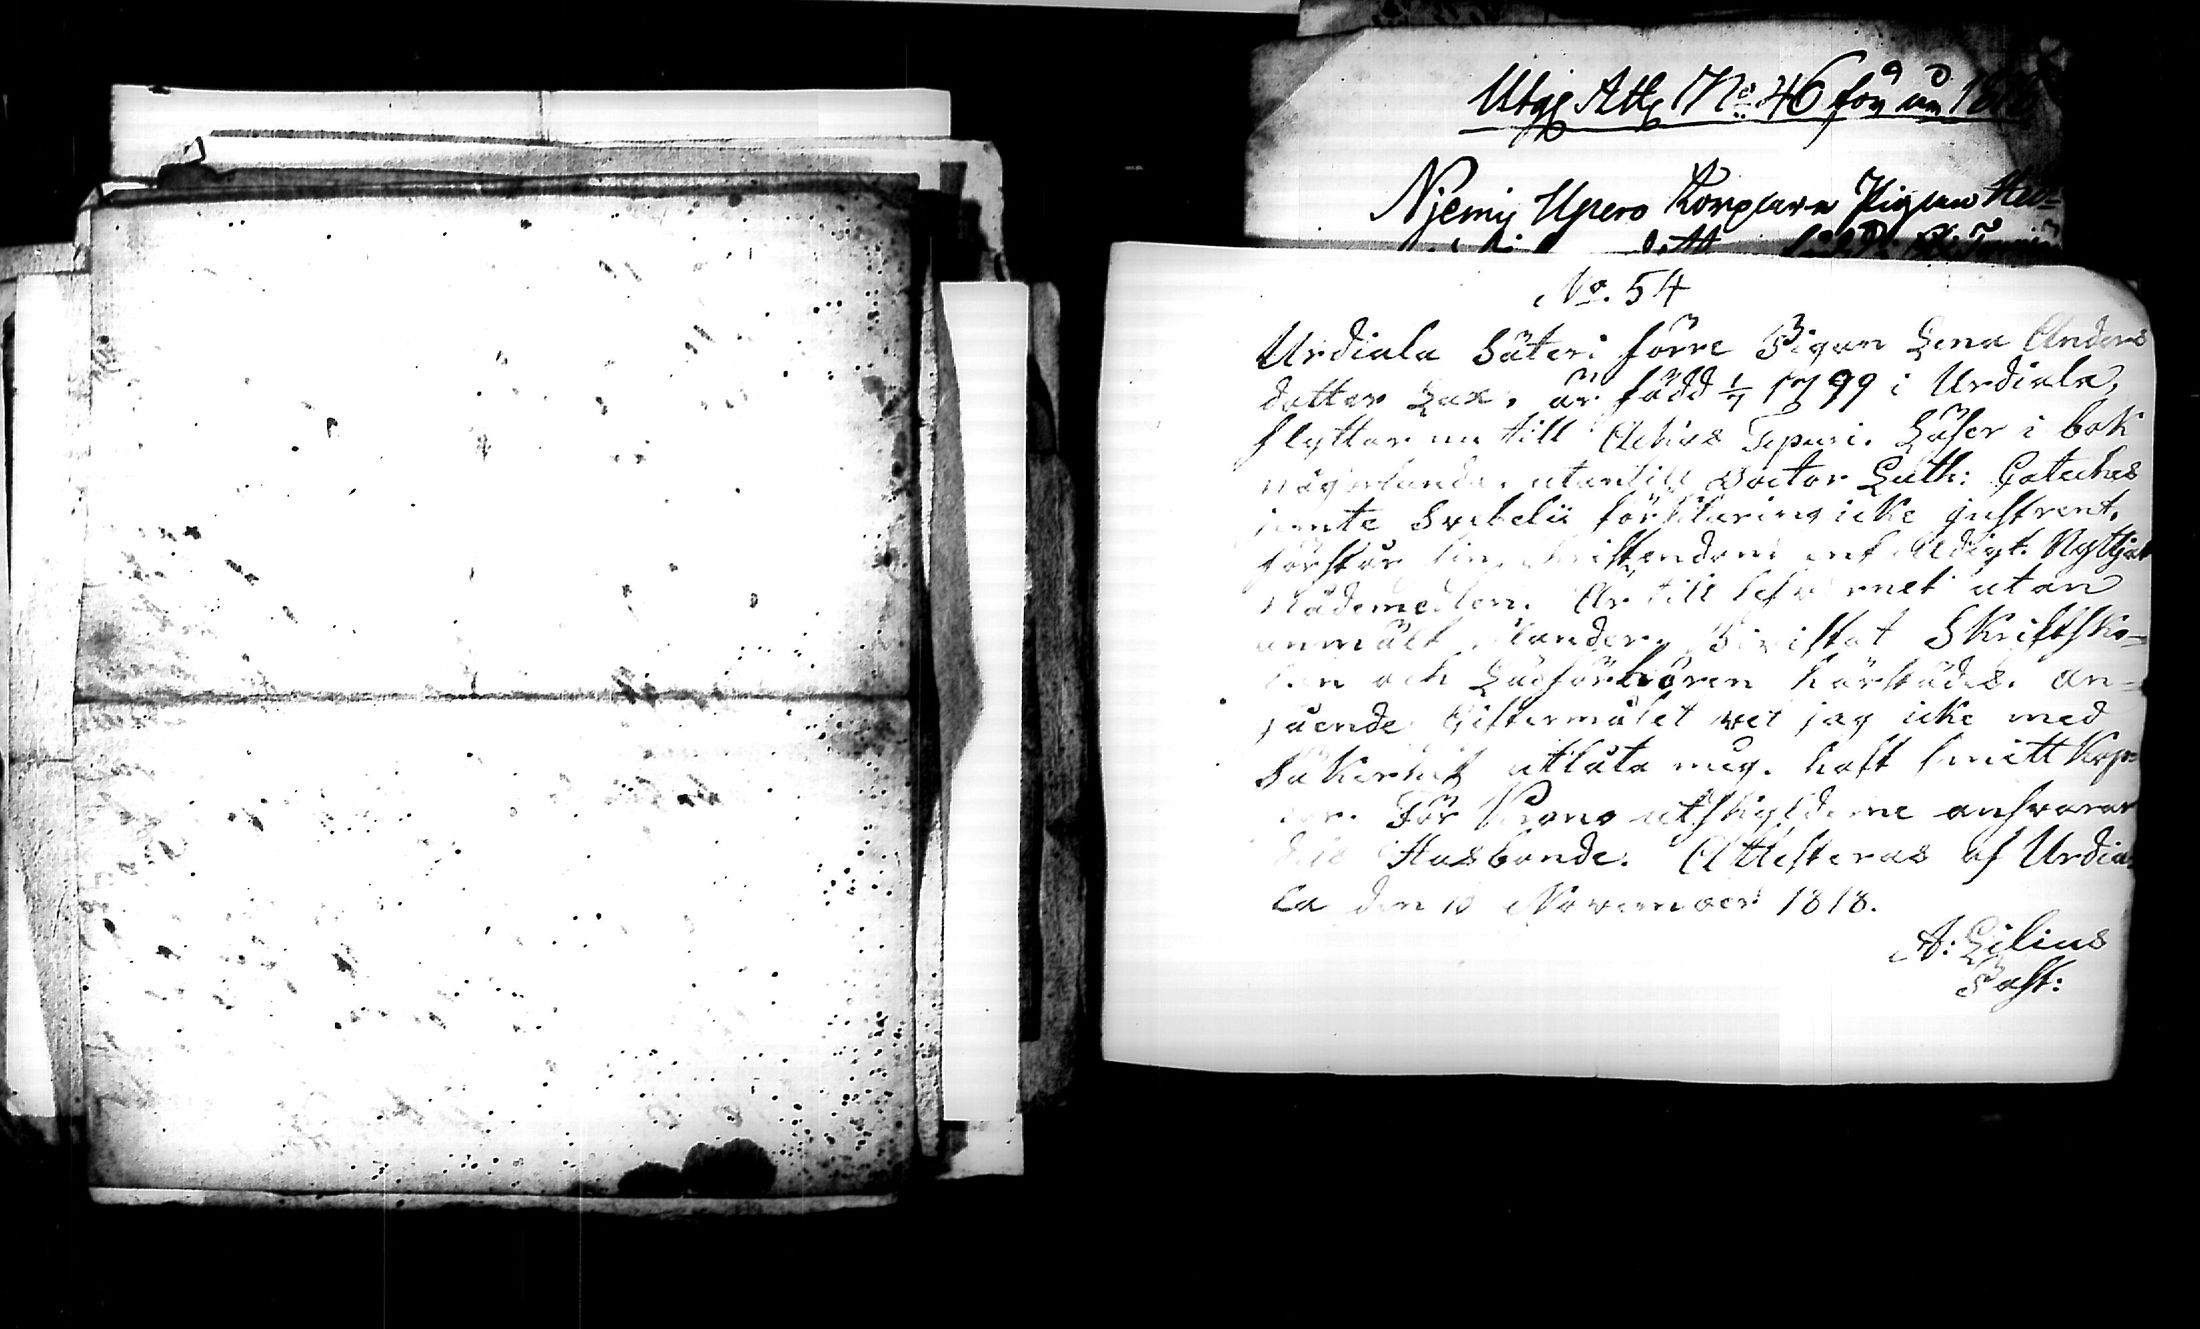 Utg Att No 46 för år 1818
Njemis Upero Torparn Pigan Hed=
No. 54
Urdiala Säteri förre Pigan Lena Anders
dotter Lax. är född 1/7 1799 i Urdiala,
flyttar nu till Achas Tepuri. Läser i bok
utantill Doctor Luth: Cateches
jemte Svebelii förklaring icke just rent.
förstår sin kristendom Nyttjat
nådemedlen. Är till lefvernet utan
anmält klander, Bivistat Skriftsko=
len och Läsförhören härstädes. An=
gående Giftermålet vet jag icke med
Säkerhet utlåta mig. haft smittkop=
por. För Krono utskylderne ansvarar
dess Husbonde. Attesteras af Urdia=
la den 10 November 1818.
A: Lilius
Past: